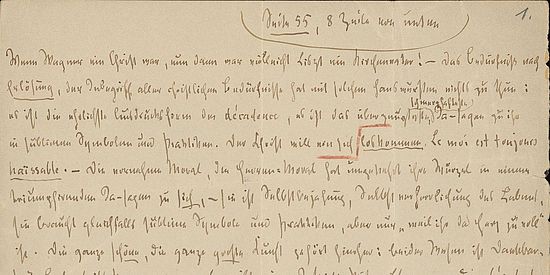 Seite 55, 8 Zeile von unten
1.
Wenn Wagner ein Christ war, nun dann war vielleicht Liszt ein Kirchenvater! — Das Bedürfniss nach
Erlösung, der Inbegriff aller christlichen Bedürfnisse hat mit solchen Hanswürsten nichts zu thun:
es ist die ehrlichste Ausdrucksform der décadence, es ist das überzeugteste, schmerzhafteste Ja-sagen zu ihr
in sublimen Symbolen und Praktiken. Der Christ will von sich loskommen. Le moi est toujours
haïssable. — Die vornehme Moral, die Herren-Moral hat umgekehrt ihre Wurzel in einem
triumphirenden Ja-sagen zu sich, — sie ist Selbstbejahung, Selbstverherrlichung des Lebens,
sie braucht gleichfalls sublime Symbole und Praktiken, aber nur „weil ihr das Herz zu voll“
ist. Die ganze schöne, die ganze große Kunst gehört hierher: beider Wesen ist Dankbar-